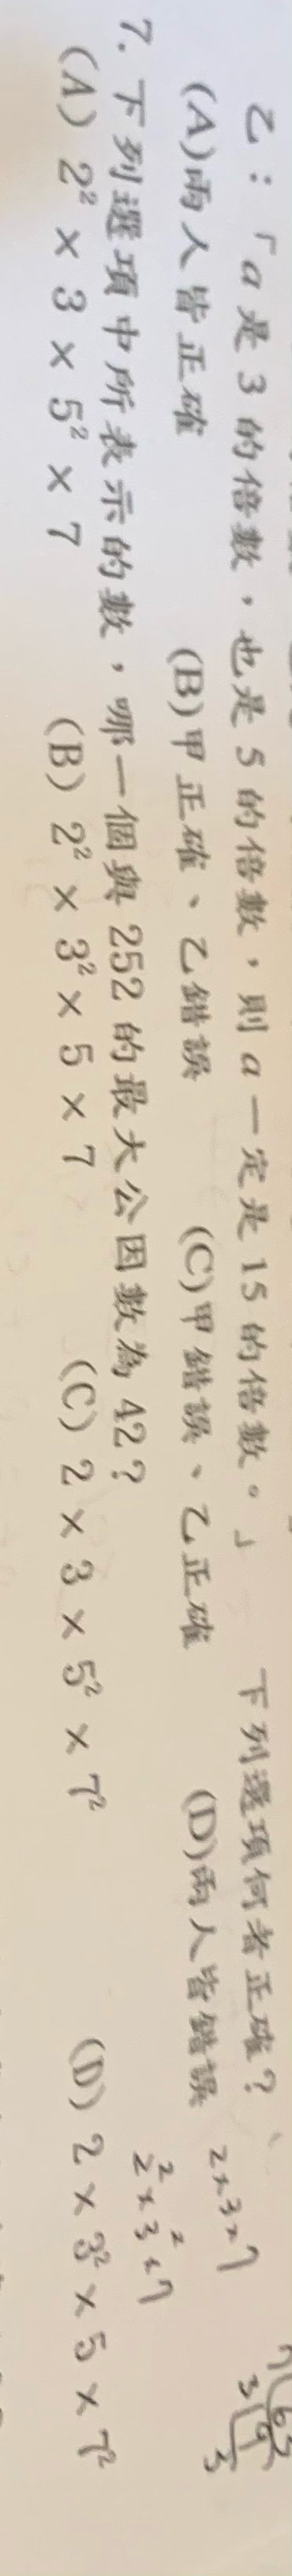 乙：「a 是 3 的倍數，也是 5 的倍數，則 a 一定是 15 的倍數。」 下列選項何者正確？
(A)兩人皆正確 (B)甲正確、乙錯誤 (C)甲錯誤、乙正確 (D)兩人皆錯誤
2×3×7
7 63
3 9
3
7. 下列選項中所表示的數，哪一個與 252 的最大公因數為 42？
2²×3²×7
(A) 2² × 3 × 5² × 7 (B) 2² × 3² × 5 × 7 (C) 2 × 3 × 5² × 7² (D) 2 × 3² × 5 × 7²